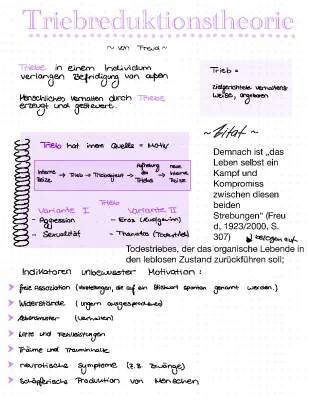 Triebreduktionstheorie
~ von Freud ~
Triebe in einem Individuum
verlangen Befridigung von außen
Menschliches Verhalten durch Triebe
erzeugt und gesteuert.
Trieb =
zielgerichtete Verhaltens-
weise, angeboren
Trieb hat innere Quelle = Motiv
Interne Reize → Trieb → Triebobjekt → Aufhebung des Triebes → neue Interne Reize
Trieb
Variante I
- Aggression
- Sexualität
Variante II
- Eros (Analgewinn)
- Thanatos (Todestrieb)
~ Zitat ~
Demnach ist „das
Leben selbst ein
Kampf und
Kompromiss
zwischen diesen
beiden
Strebungen“ (Freu
d, 1923/2000, S.
307)
bezogen auf
Todestriebes, der das organische Lebende in
den leblosen Zustand zurückführen soll;
Indikatoren unbewusster Motivation:
freie Assoziation (Vorstellungen, die auf ein Stichwort spontan genannt werden.)
Widerstände (ungern ausgesprochenes)
Lebensmuster (Verhalten)
Witze und Fehlleistungen
Träume und Trauminhalte
neurotische Symptome (z.B. Zwänge)
Schöpferische Produktion von Menschen